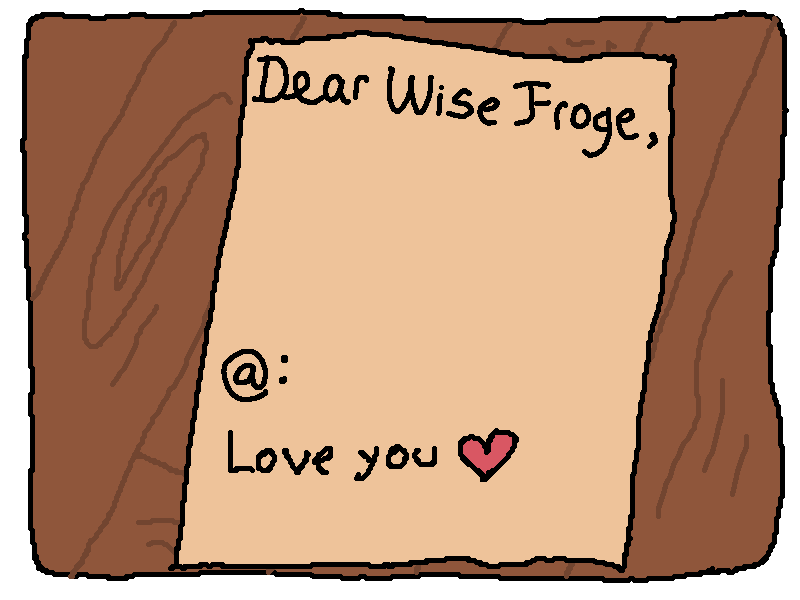 Dear Wise Froge,
@:
Love you ❤